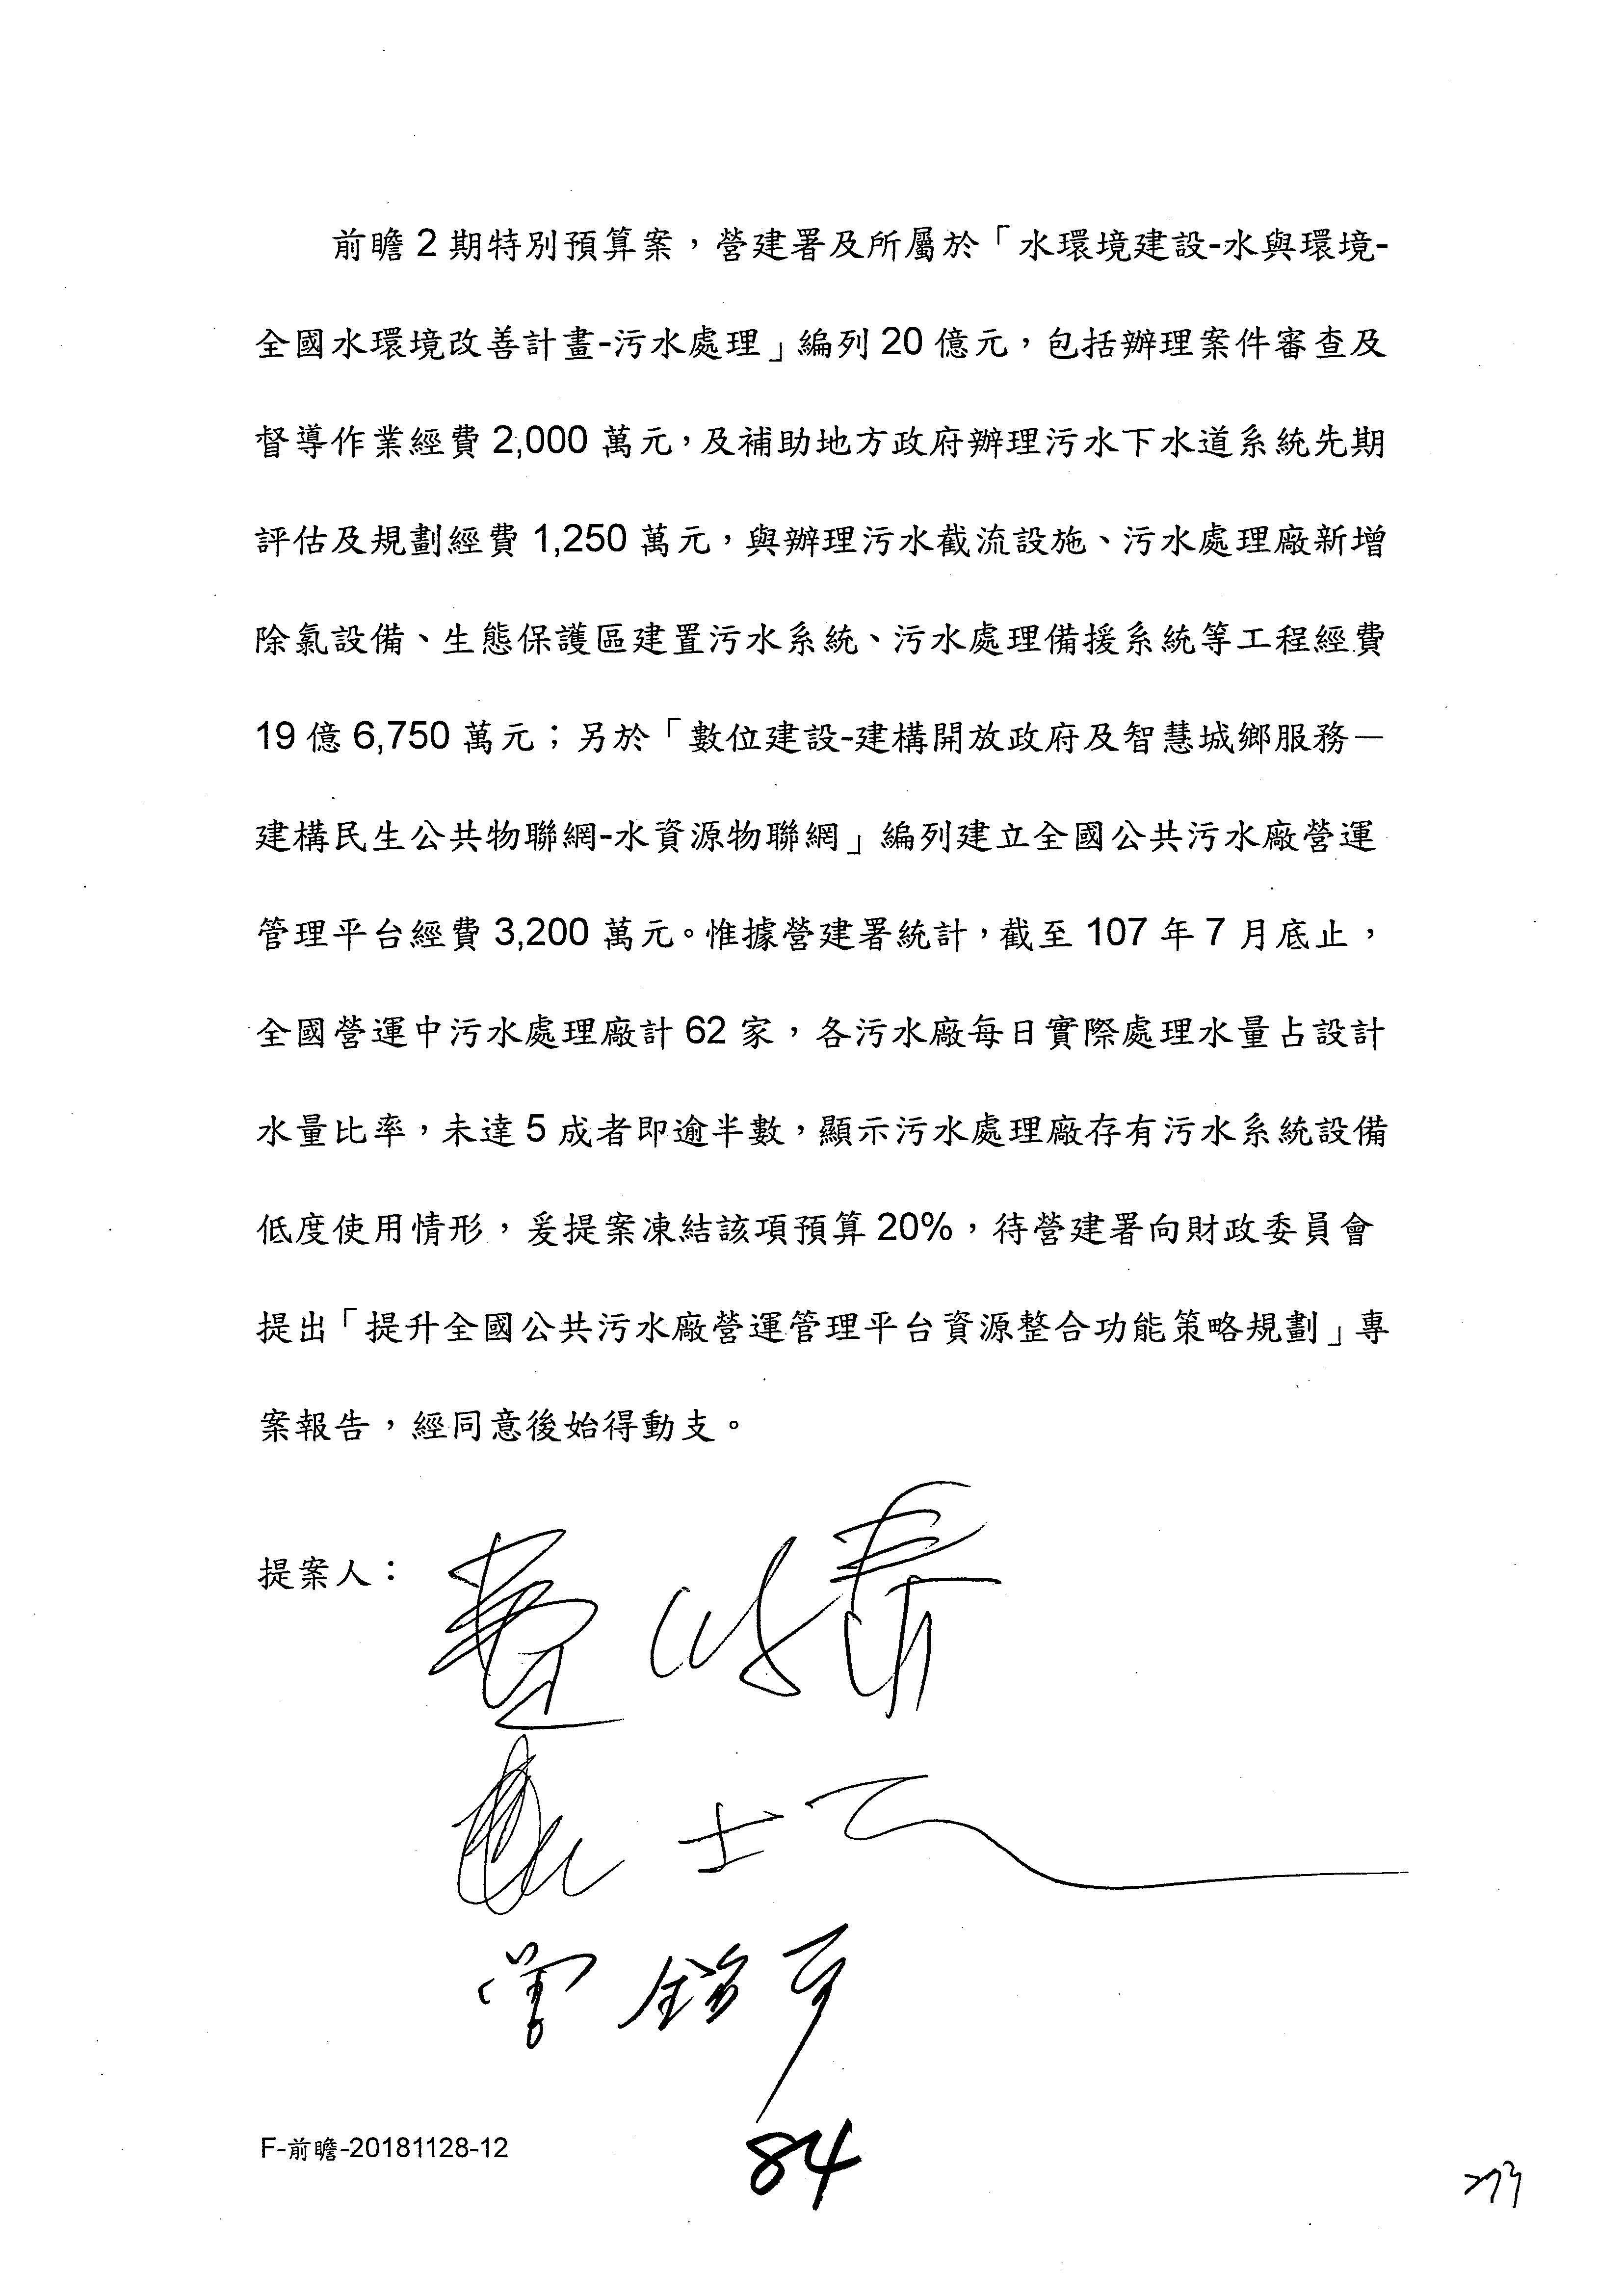 前瞻2期特別預算案，營建署及所屬於「水環境建設-水與環境-
全國水環境改善計畫-污水處理」編列20億元，包括辦理案件審查及
督導作業經費2,000萬元，及補助地方政府辦理污水下水道系統先期
評估及規劃經費1,250萬元，與辦理污水截流設施、污水處理廠新增
除氯設備、生態保護區建置污水系統、污水處理備援系統等工程經費
19億6,750萬元；另於「數位建設-建構開放政府及智慧城鄉服務—
建構民生公共物聯網-水資源物聯網」編列建立全國公共污水廠營運
管理平台經費3,200萬元。惟據營建署統計，截至107年7月底止，
全國營運中污水處理廠計62家，各污水廠每日實際處理水量占設計
水量比率，未達5成者即逾半數，顯示污水處理廠存有污水系統設備
低度使用情形，爰提案凍結該項預算20%，待營建署向財政委員會
提出「提升全國公共污水廠營運管理平台資源整合功能策略規劃」專
案報告，經同意後始得動支。
提案人：
F-前瞻-20181128-12
84